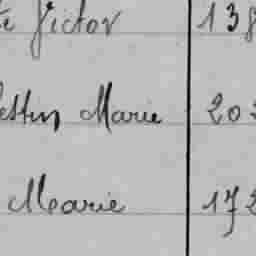 te Victor 138
estin Marie 202
Marie 172